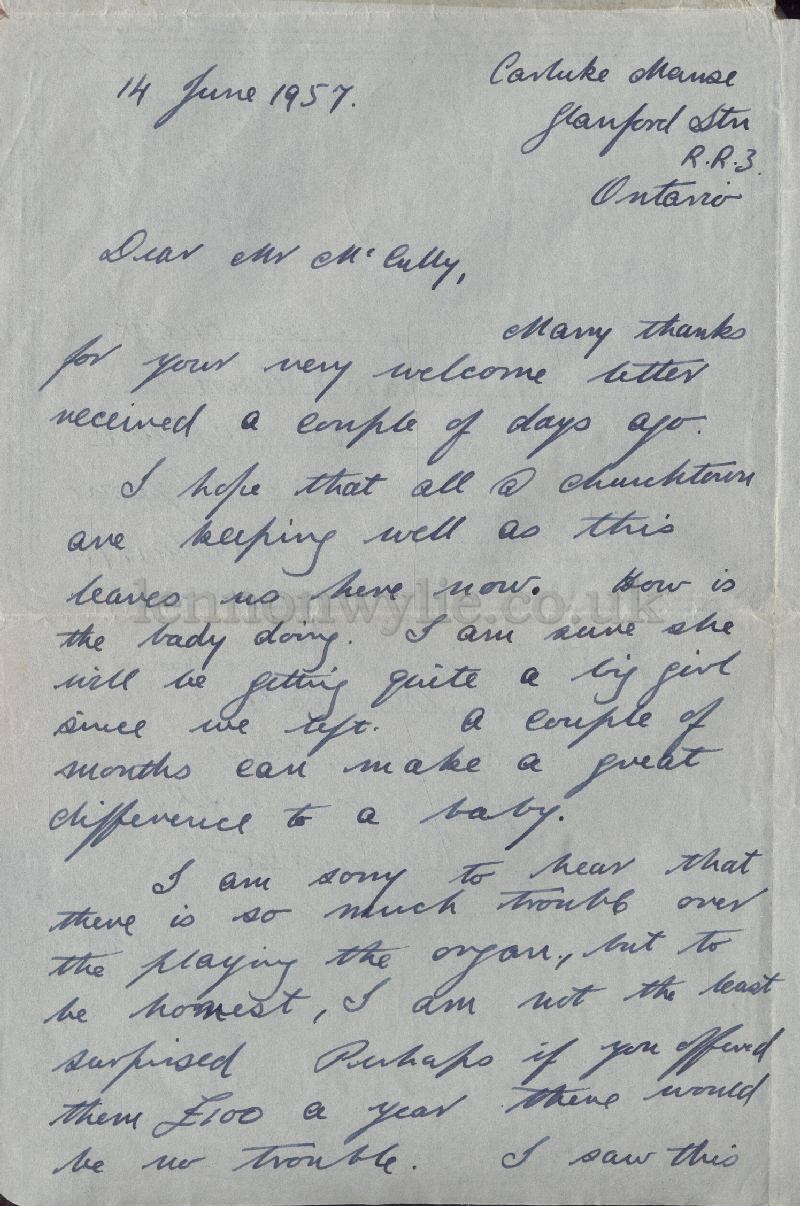 14 June 1957.
Carluke Manse
Glanford Stn
R.R.3.
Ontario
Dear Mr McCully,
Many thanks
for your very welcome letter
received a couple of days ago.
I hope that all @ Churchtown
are keeping well as this
leaves us here now. How is
the bady doing. I am sure she
will be getting quite a big girl
since we left. A couple of
months can make a great
difference to a baby.
I am sorry to hear that
there is so much trouble over
the playing the organ., but to
be honest, I am not the least
surprised Perhaps if you offered
them £100 a year there would
be no trouble. I saw this
lennonwylie.co.uk